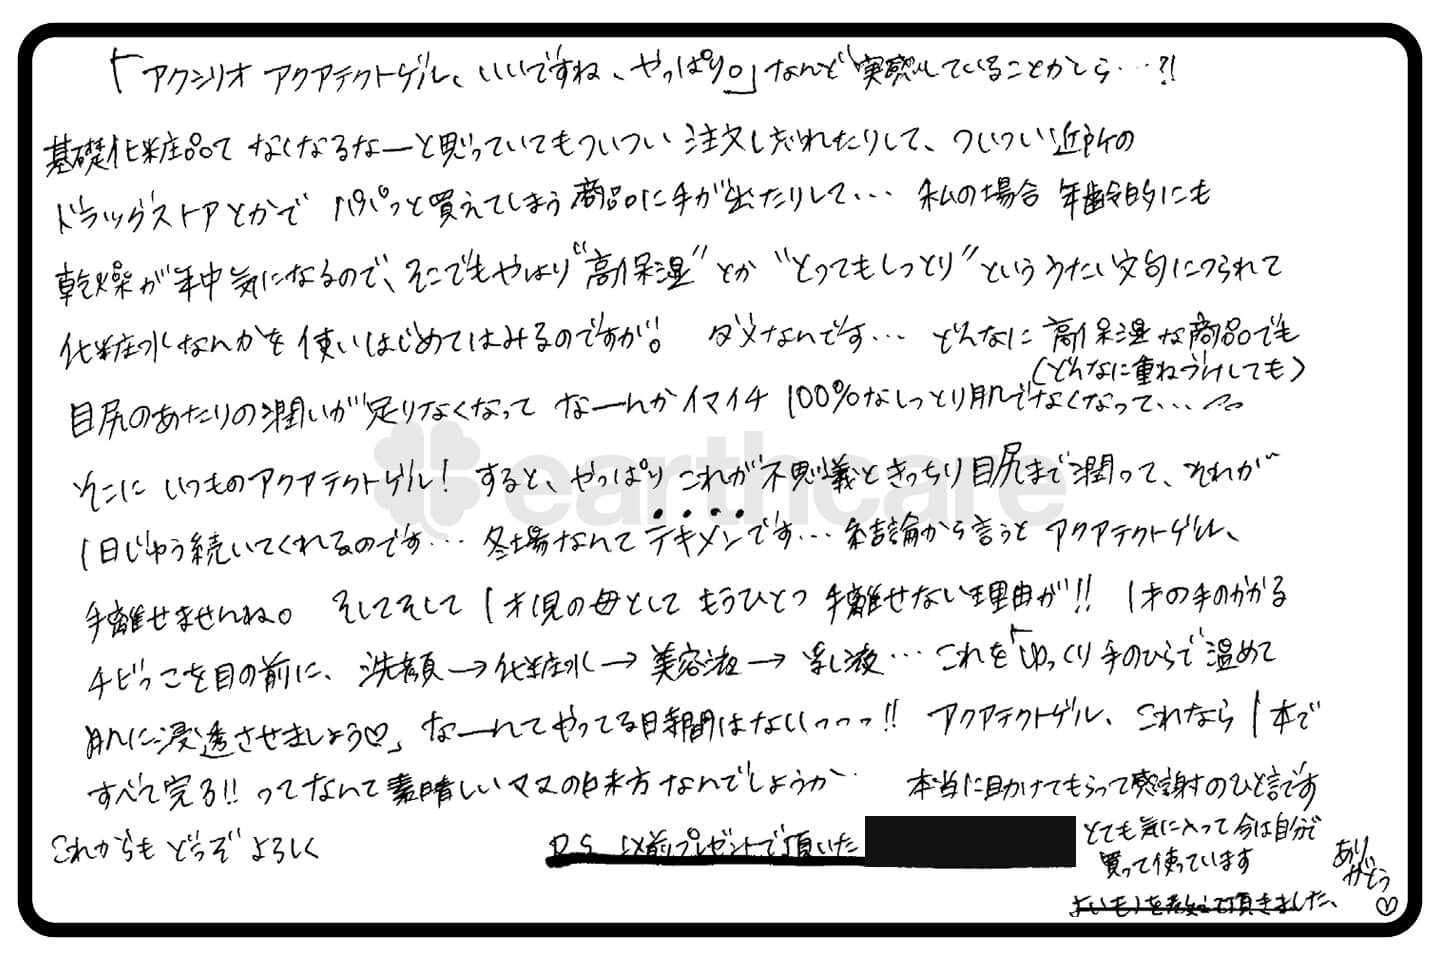 「アクシリオ アクアテクトゲル、いいですね、やっぱり。」なんど実感していることかしら…?!
基礎化粧品て なくなるなーと思っていてもついつい 注文しそびれたりして、ついつい近所の
ドラッグストアとかで パパっと買えてしまう商品に手が出たりして… 私の場合 年齢的にも
乾燥が年中気になるので、そこでもやはり“高保湿”とか “とってもしっとり”といううたい文句につられて
化粧水なんかを使いはじめてはみるのですが。 ダメなんです… どんなに高保湿な商品でも
(どんなに重ねづけしても)
目尻のあたりの潤いが足りなくなって なーんかイマイチ 100%なしっとり肌でなくなって…
earthcare
そこに いつものアクアテクトゲル! すると、やっぱりこれが不思議ときっちり目尻まで潤って、それが
1日じゅう続いてくれるのです… 冬場なんてテキメンです… 結論から言うと アクアテクトゲル、
手離せませんね。 そしてそして 1才児の母として もうひとつ 手離せない理由が!! 1才の手のかかる
チビっこを目の前に、洗顔→化粧水→美容液→乳液… これを「ゆっくり手のひらで温めて
肌に浸透させましょう♡」なーんてやってる時間はないっっっ!! アクアテクトゲル、これなら1本で
すべて完了!! ってなんて素晴しいママの味方なんでしょうか 本当に助けてもらって感謝のひと言です
これからも どうぞ よろしく
P.S. 以前プレゼントで頂いた
とても気に入って今は自分で
買って使っています
ありがとう♡